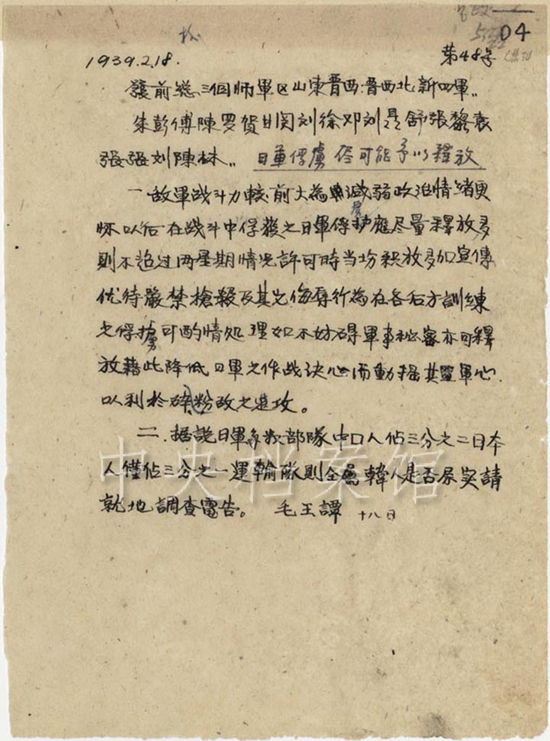 04
1939.2.18.
第48号
发前总、三個师軍区山東晋西、晋西北、新四軍。
朱彭傅陳罗贺甘関刘徐邓刘聂舒張黎袁
張張刘陳林。日軍俘虏儘可能予以釋放
一、敌軍战斗力較前大為减弱政治情緒更
坏以后在战斗中俘获之日軍俘虏應尽量釋放多
則不过两星期情况許可時当場釈放多加宣傳
优待嚴禁搶殺及其它侮辱行為在各后方訓練
之俘虏可酌情処理如不妨碍軍事祕密亦可釋
放藉此降低日軍之作战决心而動揺其軍心
以利於粉敌之進攻。
二、据説日軍多数部隊中口人佔三分之二日本
人僅佔三分之一運輸隊則全属韓人是否属实請
就地調查電告。 毛王譚 十八日
中央档案馆